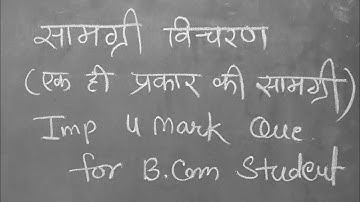 सामग्री विचरण
(एक ही प्रकार की सामग्री)
Imp 4 Mark Que.
for B.Com Student